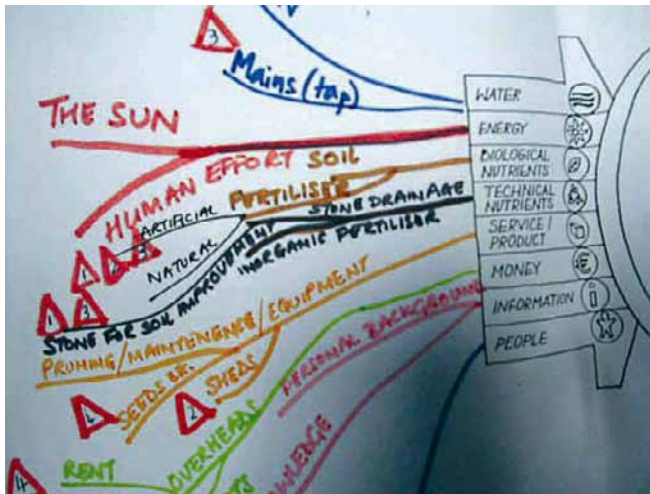 3
Mains (tap)
THE SUN
HUMAN EFFORT
SOIL
FERTILISER
ARTIFICIAL
NATURAL
STONE DRAINAGE
INORGANIC FERTILISER
STONE FOR SOIL IMPROVEMENT
1
3
1
3
PRUNING/MAINTENENCE/EQUIPMENT
SEEDS
4
SHEDS
2
PERSONAL BACKGROUND
OVERHEADS
RENT
4
WATER
ENERGY
BIOLOGICAL
NUTRIENTS
TECHNICAL
NUTRIENTS
SERVICE/
PRODUCT
MONEY
€
INFORMATION
i
PEOPLE